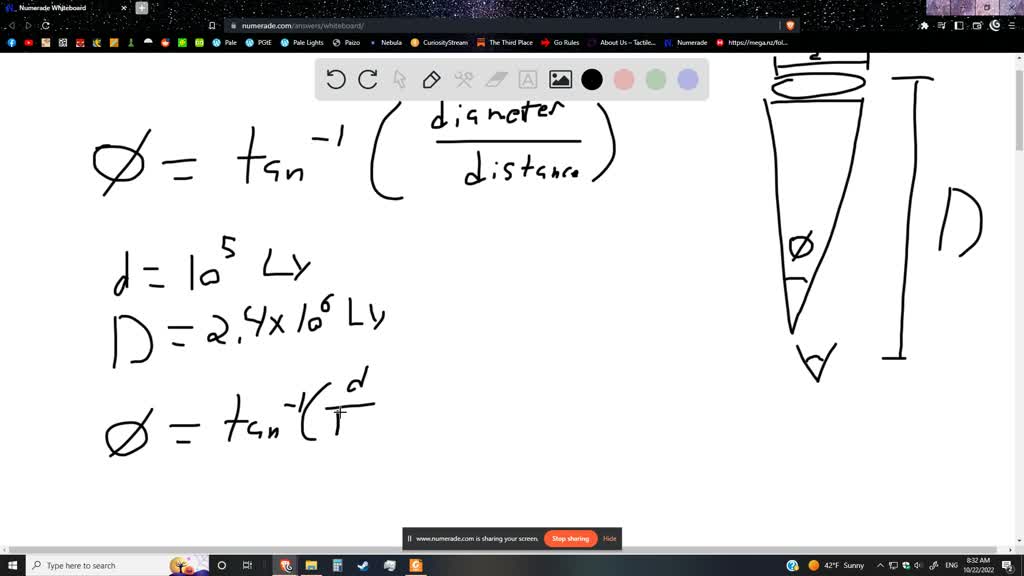 Numerade Whiteboard
numerade.com/answers/whiteboard/
Pale PGtE Pale Lights Paizo Nebula CuriosityStream The Third Place Go Rules About Us – Tactile... Numerade https://mega.nz/fol...
ø = tan⁻¹ ( diameter / distance )
d = 10⁵ Ly
D = 2.4 x 10⁶ Ly
ø = tan⁻¹ ( d
ø
D
www.numerade.com is sharing your screen. Stop sharing Hide
Type here to search
42°F Sunny
ENG
8:32 AM
10/22/2022